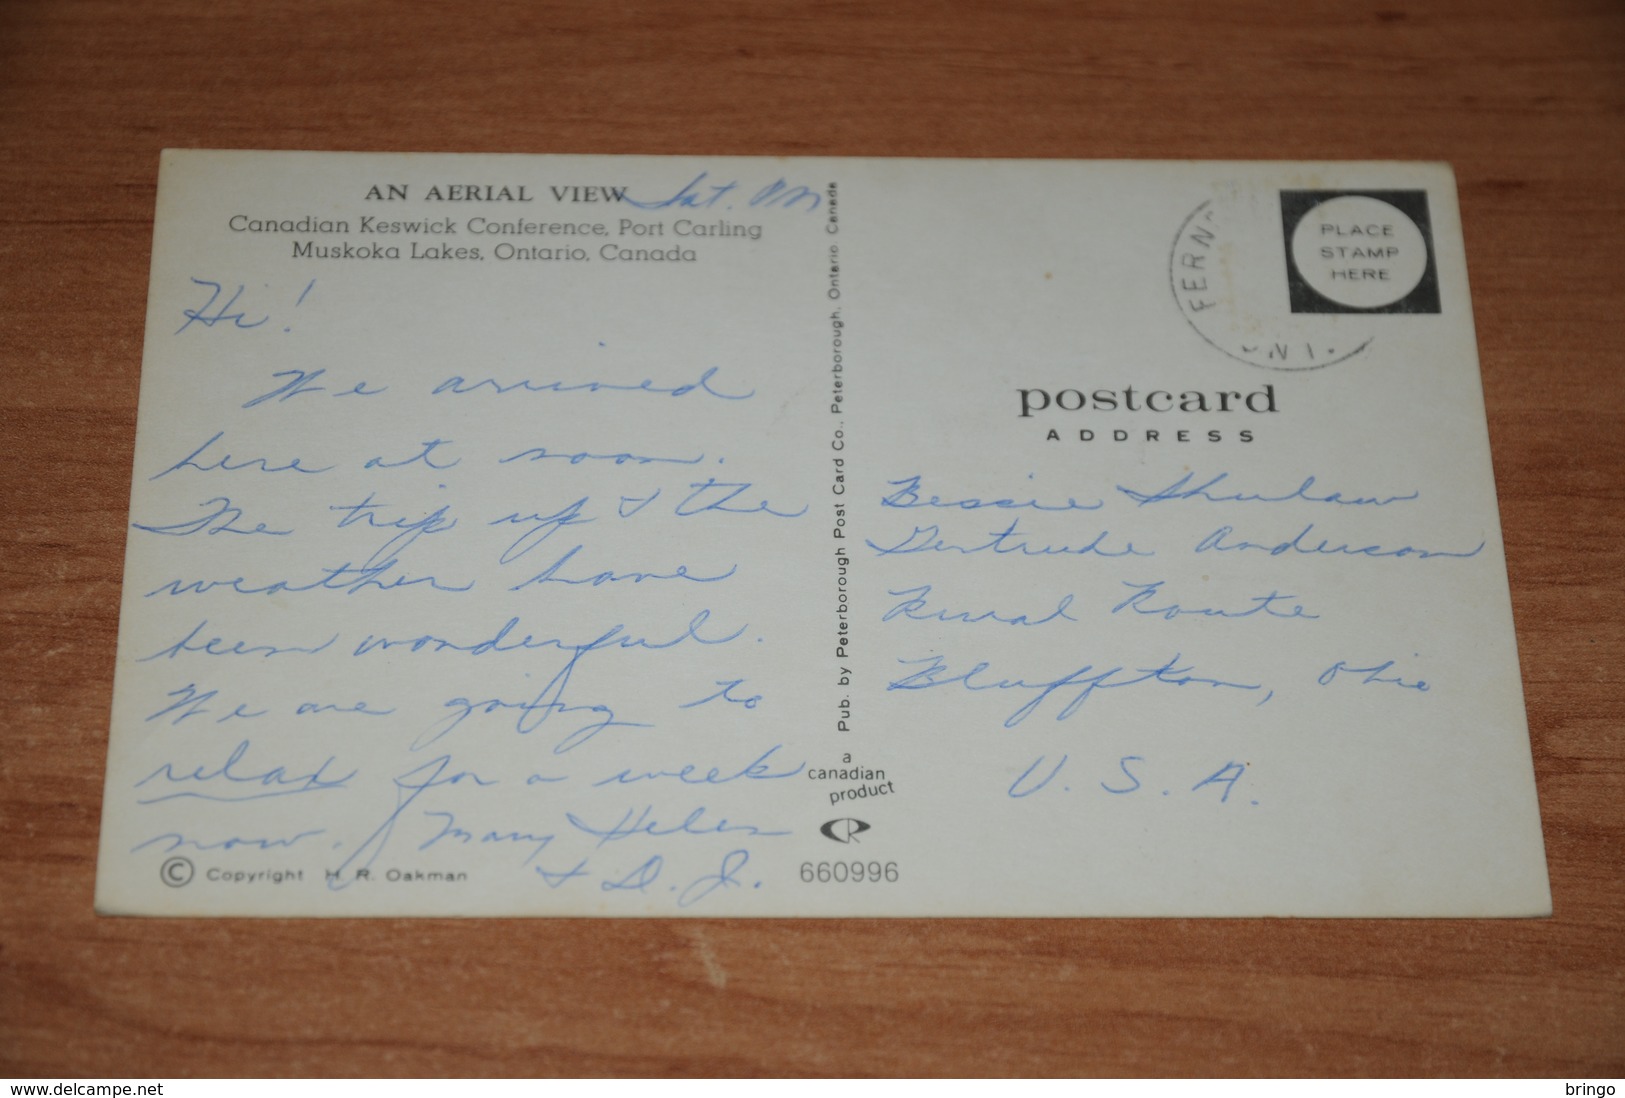 AN AERIAL VIEW Sat. PM
Canadian Keswick Conference, Port Carling
Muskoka Lakes, Ontario, Canada
Hi!
We arrived
here at noon.
The trip up & the
weather have
been wonderful.
We are going to
relax for a week
now. Mary Helen
& D. J.
© Copyright H. R. Oakman
Pub. by Peterborough Post Card Co., Peterborough, Ontario, Canada
a
canadian
product
660996
FERN
ONT.
PLACE
STAMP
HERE
postcard
ADDRESS
Bessie Shulaw
Gertrude Anderson
Rural Route
Bluffton, Ohio
U. S. A.
www.delcampe.net
bringo